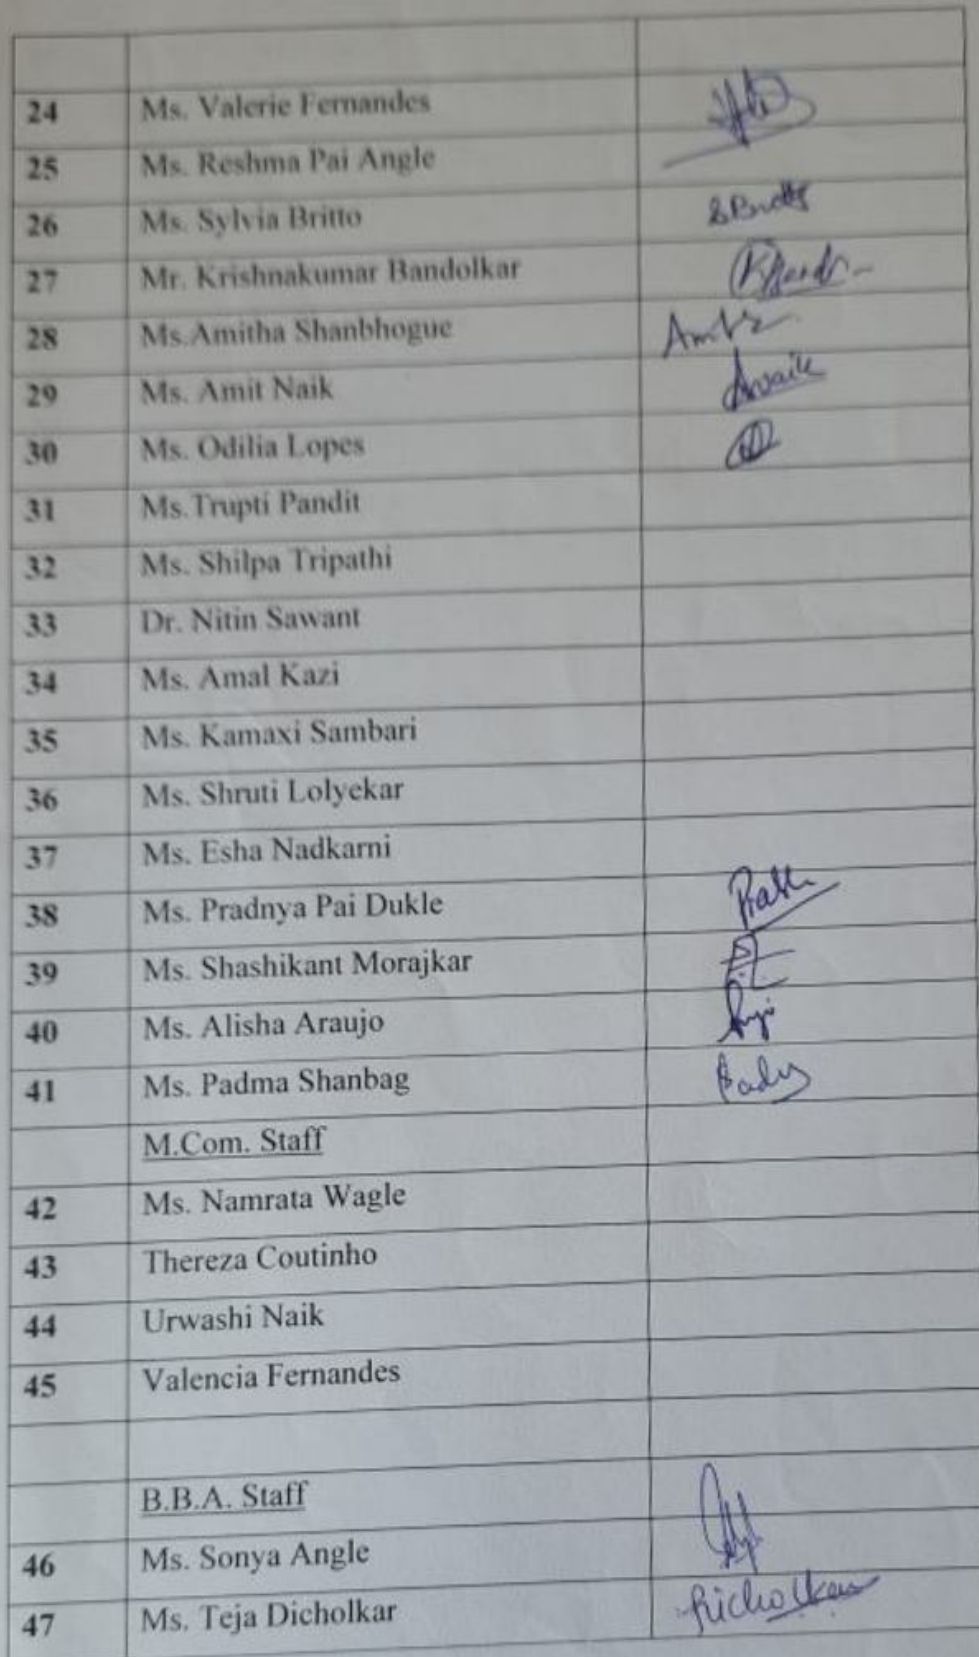 24 Ms. Valerie Fernandes
25 Ms. Reshma Pai Angle
26 Ms. Sylvia Britto SBritto
27 Mr. Krishnakumar Bandolkar
28 Ms.Amitha Shanbhogue
29 Ms. Amit Naik Anaik
30 Ms. Odilia Lopes
31 Ms.Trupti Pandit
32 Ms. Shilpa Tripathi
33 Dr. Nitin Sawant
34 Ms. Amal Kazi
35 Ms. Kamaxi Sambari
36 Ms. Shruti Lolyekar
37 Ms. Esha Nadkarni
38 Ms. Pradnya Pai Dukle
39 Ms. Shashikant Morajkar
40 Ms. Alisha Araujo
41 Ms. Padma Shanbag
M.Com. Staff
42 Ms. Namrata Wagle
43 Thereza Coutinho
44 Urwashi Naik
45 Valencia Fernandes
B.B.A. Staff
46 Ms. Sonya Angle
47 Ms. Teja Dicholkar